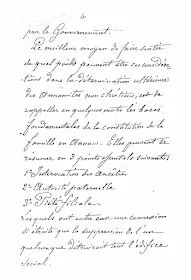 4
par le Gouvernement.
Le meilleur moyen de faire sentir
de quel poids peuvent être ces considéra
tions dans la détermination ultérieure
des Annamites non chrétiens, est de
rappeler en quelques mots les bases
fondamentales de la constitution de la
famille en Annam. Elles peuvent se
résumer en 3 points essentiels suivants:
1° Vénération des Ancêtres
2° Autorité paternelle
3° Piété filiale
lesquels ont entre eux une connexion
si étroite que la suppression de l'un
quelconque détruirait tout l'édifice
social.